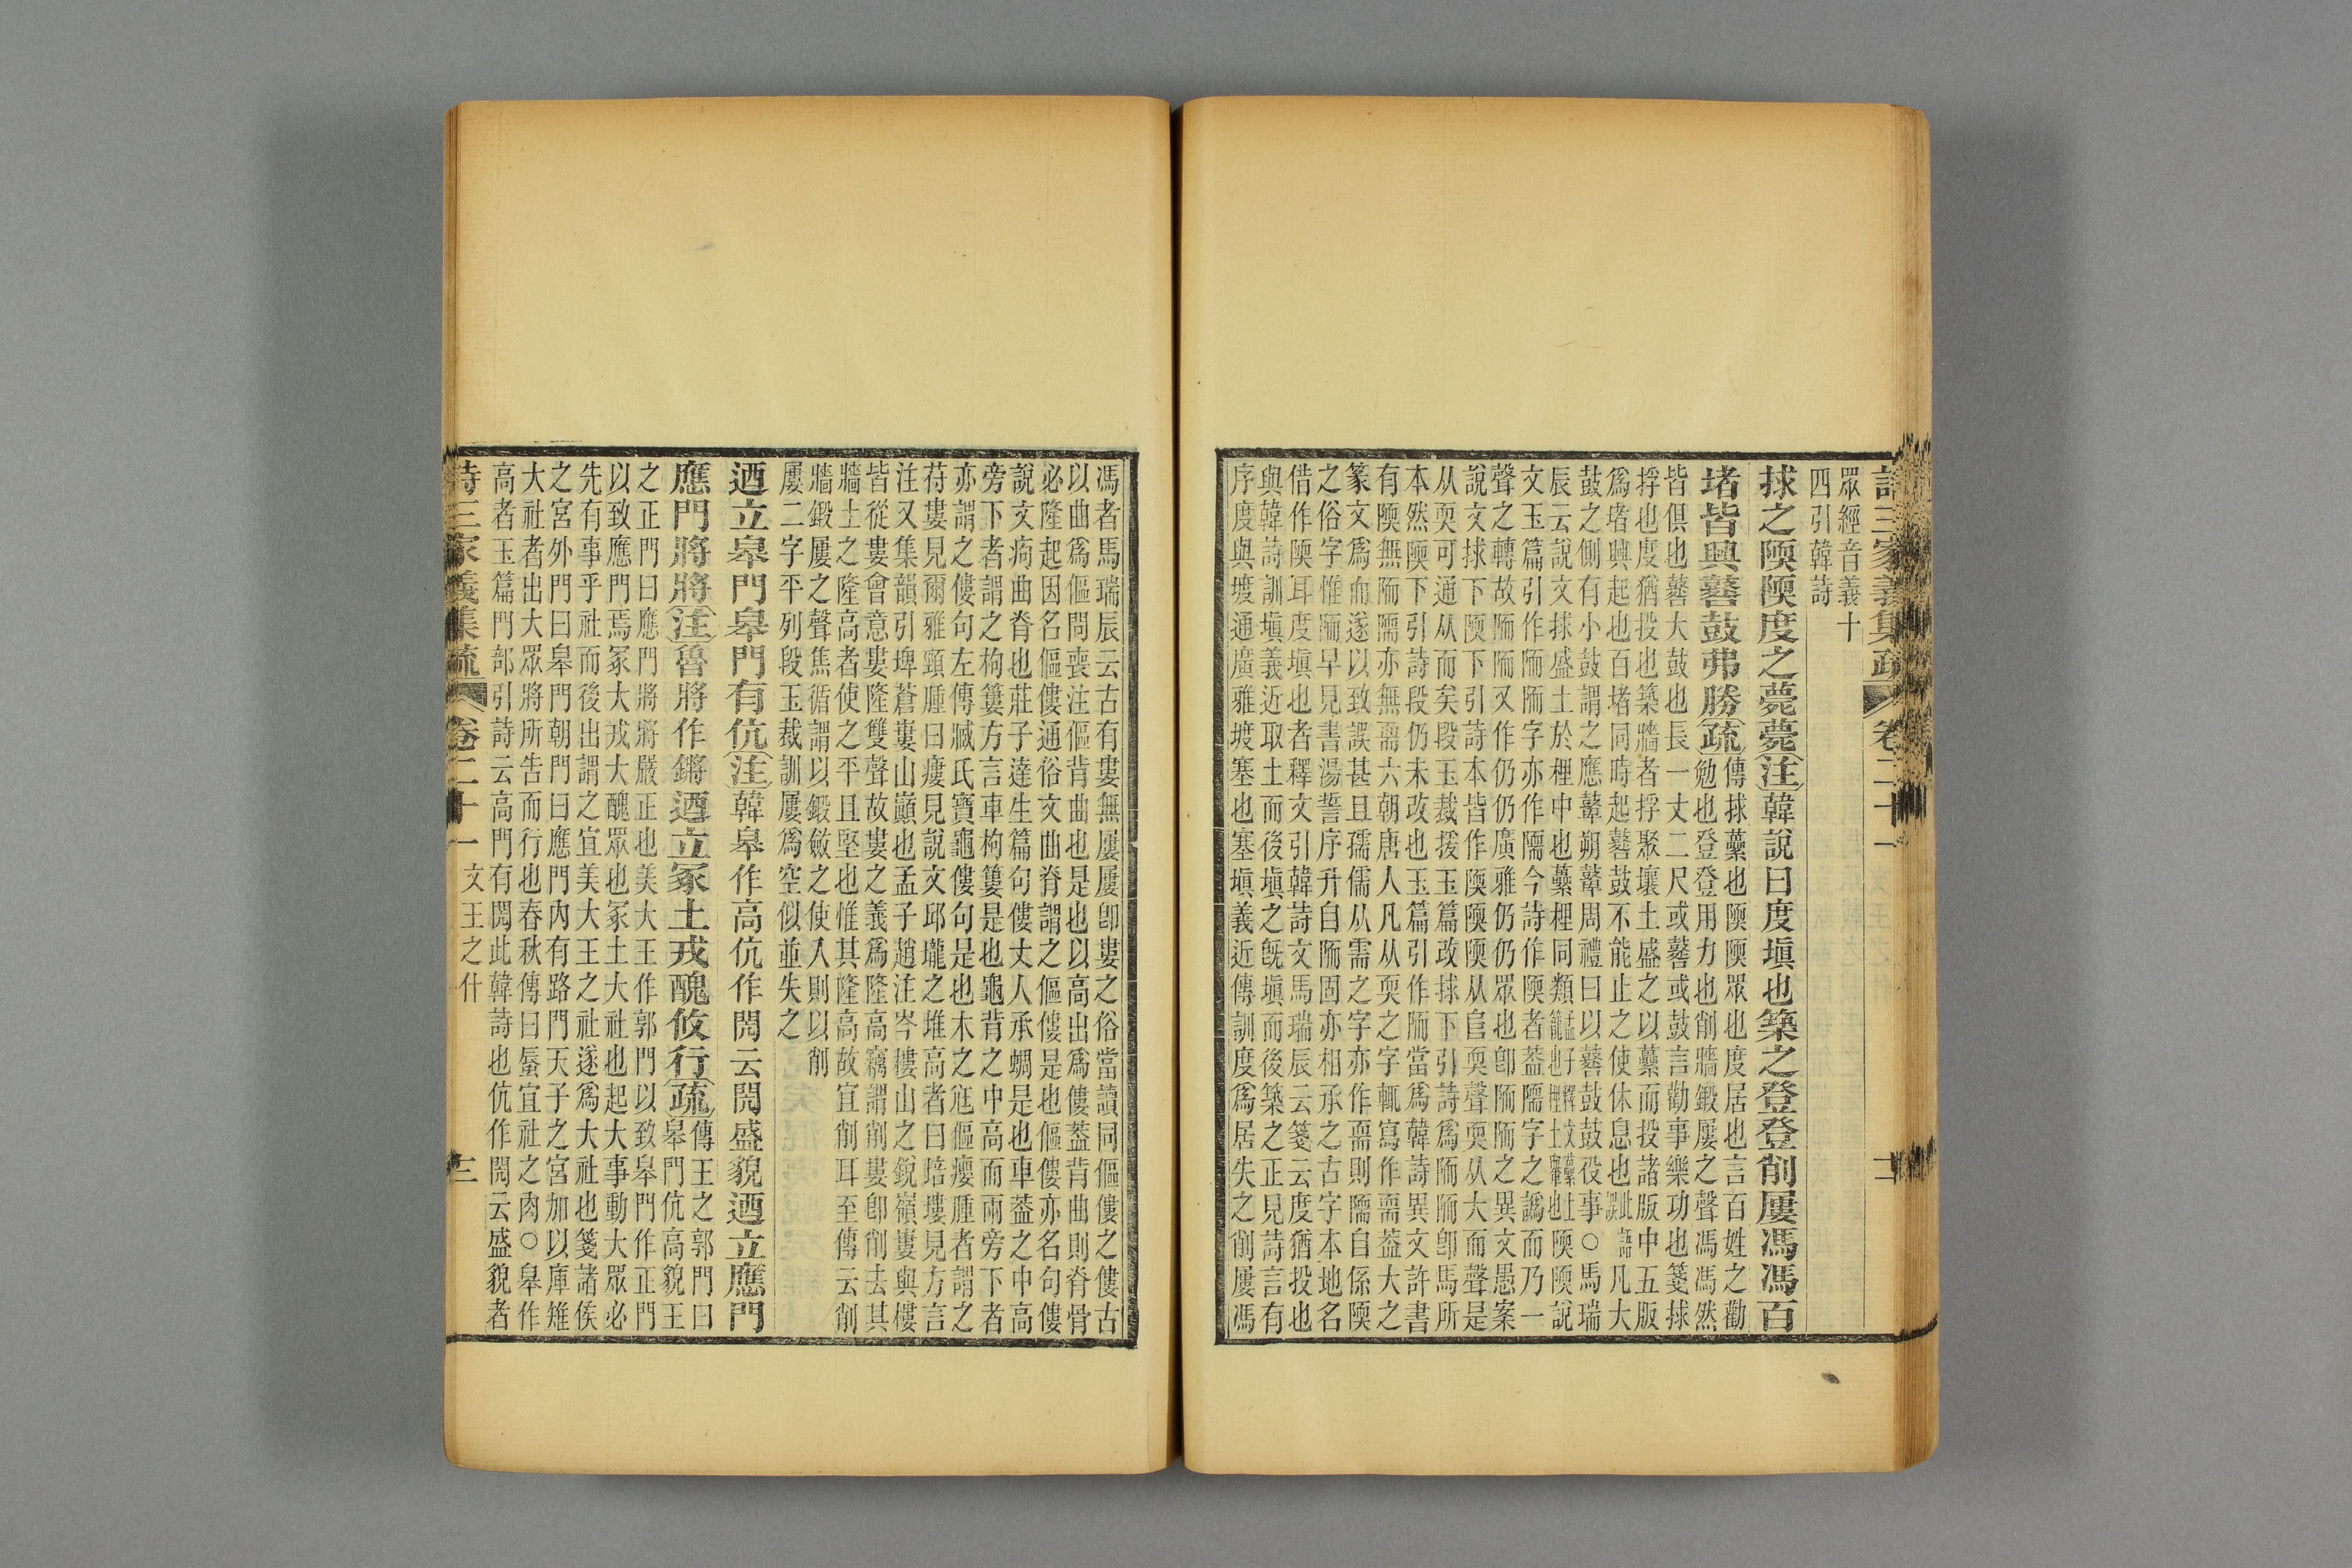 詩三家義集疏　卷二十一
眾經音義十
四引韓詩
捄之陾陾度之薨薨注韓說曰度塡也築之登登削屢馮馮百
堵皆興鼛鼓弗勝疏傳捄虆也陾陾眾也度居也言百姓之勸
勉也登登用力也削牆鍛屢之聲馮馮然
皆俱也鼛大鼓也長一丈二尺或鼛或鼓言勸事樂功也箋捄
捊也度猶投也築牆者捊聚壤土盛之以虆而投諸版中五版
爲堵興起也百堵同時起鼛鼓不能止之使休息也凡大
鼓之側有小鼓謂之應鼙朔鼙周禮曰以鼛鼓鼓役事○馬瑞
辰云說文捄盛土於梩中也虆梩同類陾陾說
文玉篇引作陑陑字亦作隭今詩作陾者葢隭字之譌而乃一
聲之轉故陑陑又作仍仍廣雅仍仍眾也卽陑陑之異文愚案
說文捄下陾下引詩本皆作陾陾从𨸏耎聲耎从大而聲是
从耎可通从而矣段玉裁援玉篇改捄下引詩爲陑陑卽馬所
本然陾下引詩段仍未改也玉篇引作陑當爲韓詩異文許書
有陾無陑隭亦無需六朝唐人凡从耎之字輒寫作需葢大之
篆文爲而遂以致誤甚且孺儒从需之字亦作需則隭自係陾
之俗字惟陑早見書湯誓序升自陑固亦相承之古字本地名
借作陾耳度塡也者釋文引韓詩文馬瑞辰云箋云度猶投也
與韓詩訓塡義近取土而後塡之旣塡而後築之正見詩言有
序度與㘺通廣雅㘺塞也塞塡義近傳訓度爲居失之削屢馮
馮者馬瑞辰云古有婁無屢屢卽婁之俗當讀同傴僂之僂古
以曲爲傴問喪注傴背曲也是也以高出爲僂葢背曲則脊骨
必隆起因名傴僂通俗文曲脊謂之傴僂是也傴僂亦名句僂
說文痀曲脊也莊子達生篇句僂丈人承蜩是也車葢之中高
旁下者謂之枸簍方言車枸簍是也龜背之中高而兩旁下者
亦謂之僂句左傳臧氏寶龜僂句是也木之尫傴癭腫者謂之
苻婁見爾雅頸腫曰瘻見說文邱壠之堆高者曰培塿見方言
注又集韻引埤蒼塿山巓也孟子趙注岑樓山之銳嶺塿與樓
皆從婁會意婁隆雙聲故婁之義爲隆高竊謂削婁卽削去其
牆土之隆高者使之平且堅也惟其隆高故宜削耳至傳云削
牆鍛屢之聲焦循謂以鍛斂之使入則以削
屢二字平列段玉裁訓屢爲空似並失之
迺立皋門皋門有伉注韓皋作高伉作閌云閌盛貌迺立應門
應門將將注魯將作鏘迺立冢土戎醜攸行疏傳王之郭門曰
皋門伉高貌王
之正門曰應門將將嚴正也美大王作郭門以致皋門作正門
以致應門焉冢大戎大醜眾也冢土大社也起大事動大眾必
先有事乎社而後出謂之宜美大王之社遂爲大社也箋諸侯
之宮外門曰皋門朝門曰應門內有路門天子之宮加以庫雉
大社者出大眾將所告而行也春秋傳曰蜃宜社之肉○皋作
高者玉篇門部引詩云高門有閌此韓詩也伉作閌云盛貌者
詩三家義集疏　卷二十一　文王之什　三